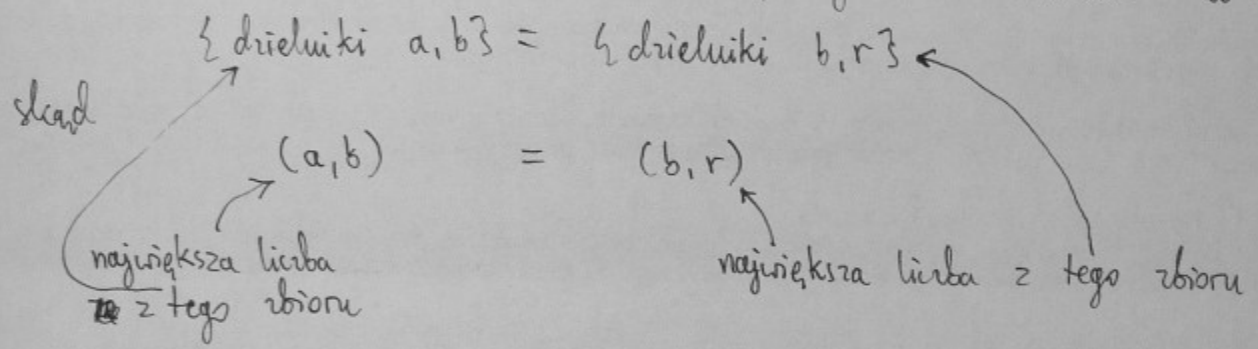 { dzielniki a, b } = { dzielniki b, r }
skąd
(a, b) = (b, r)
największa liczba
z tego zbioru
największa liczba z tego zbioru